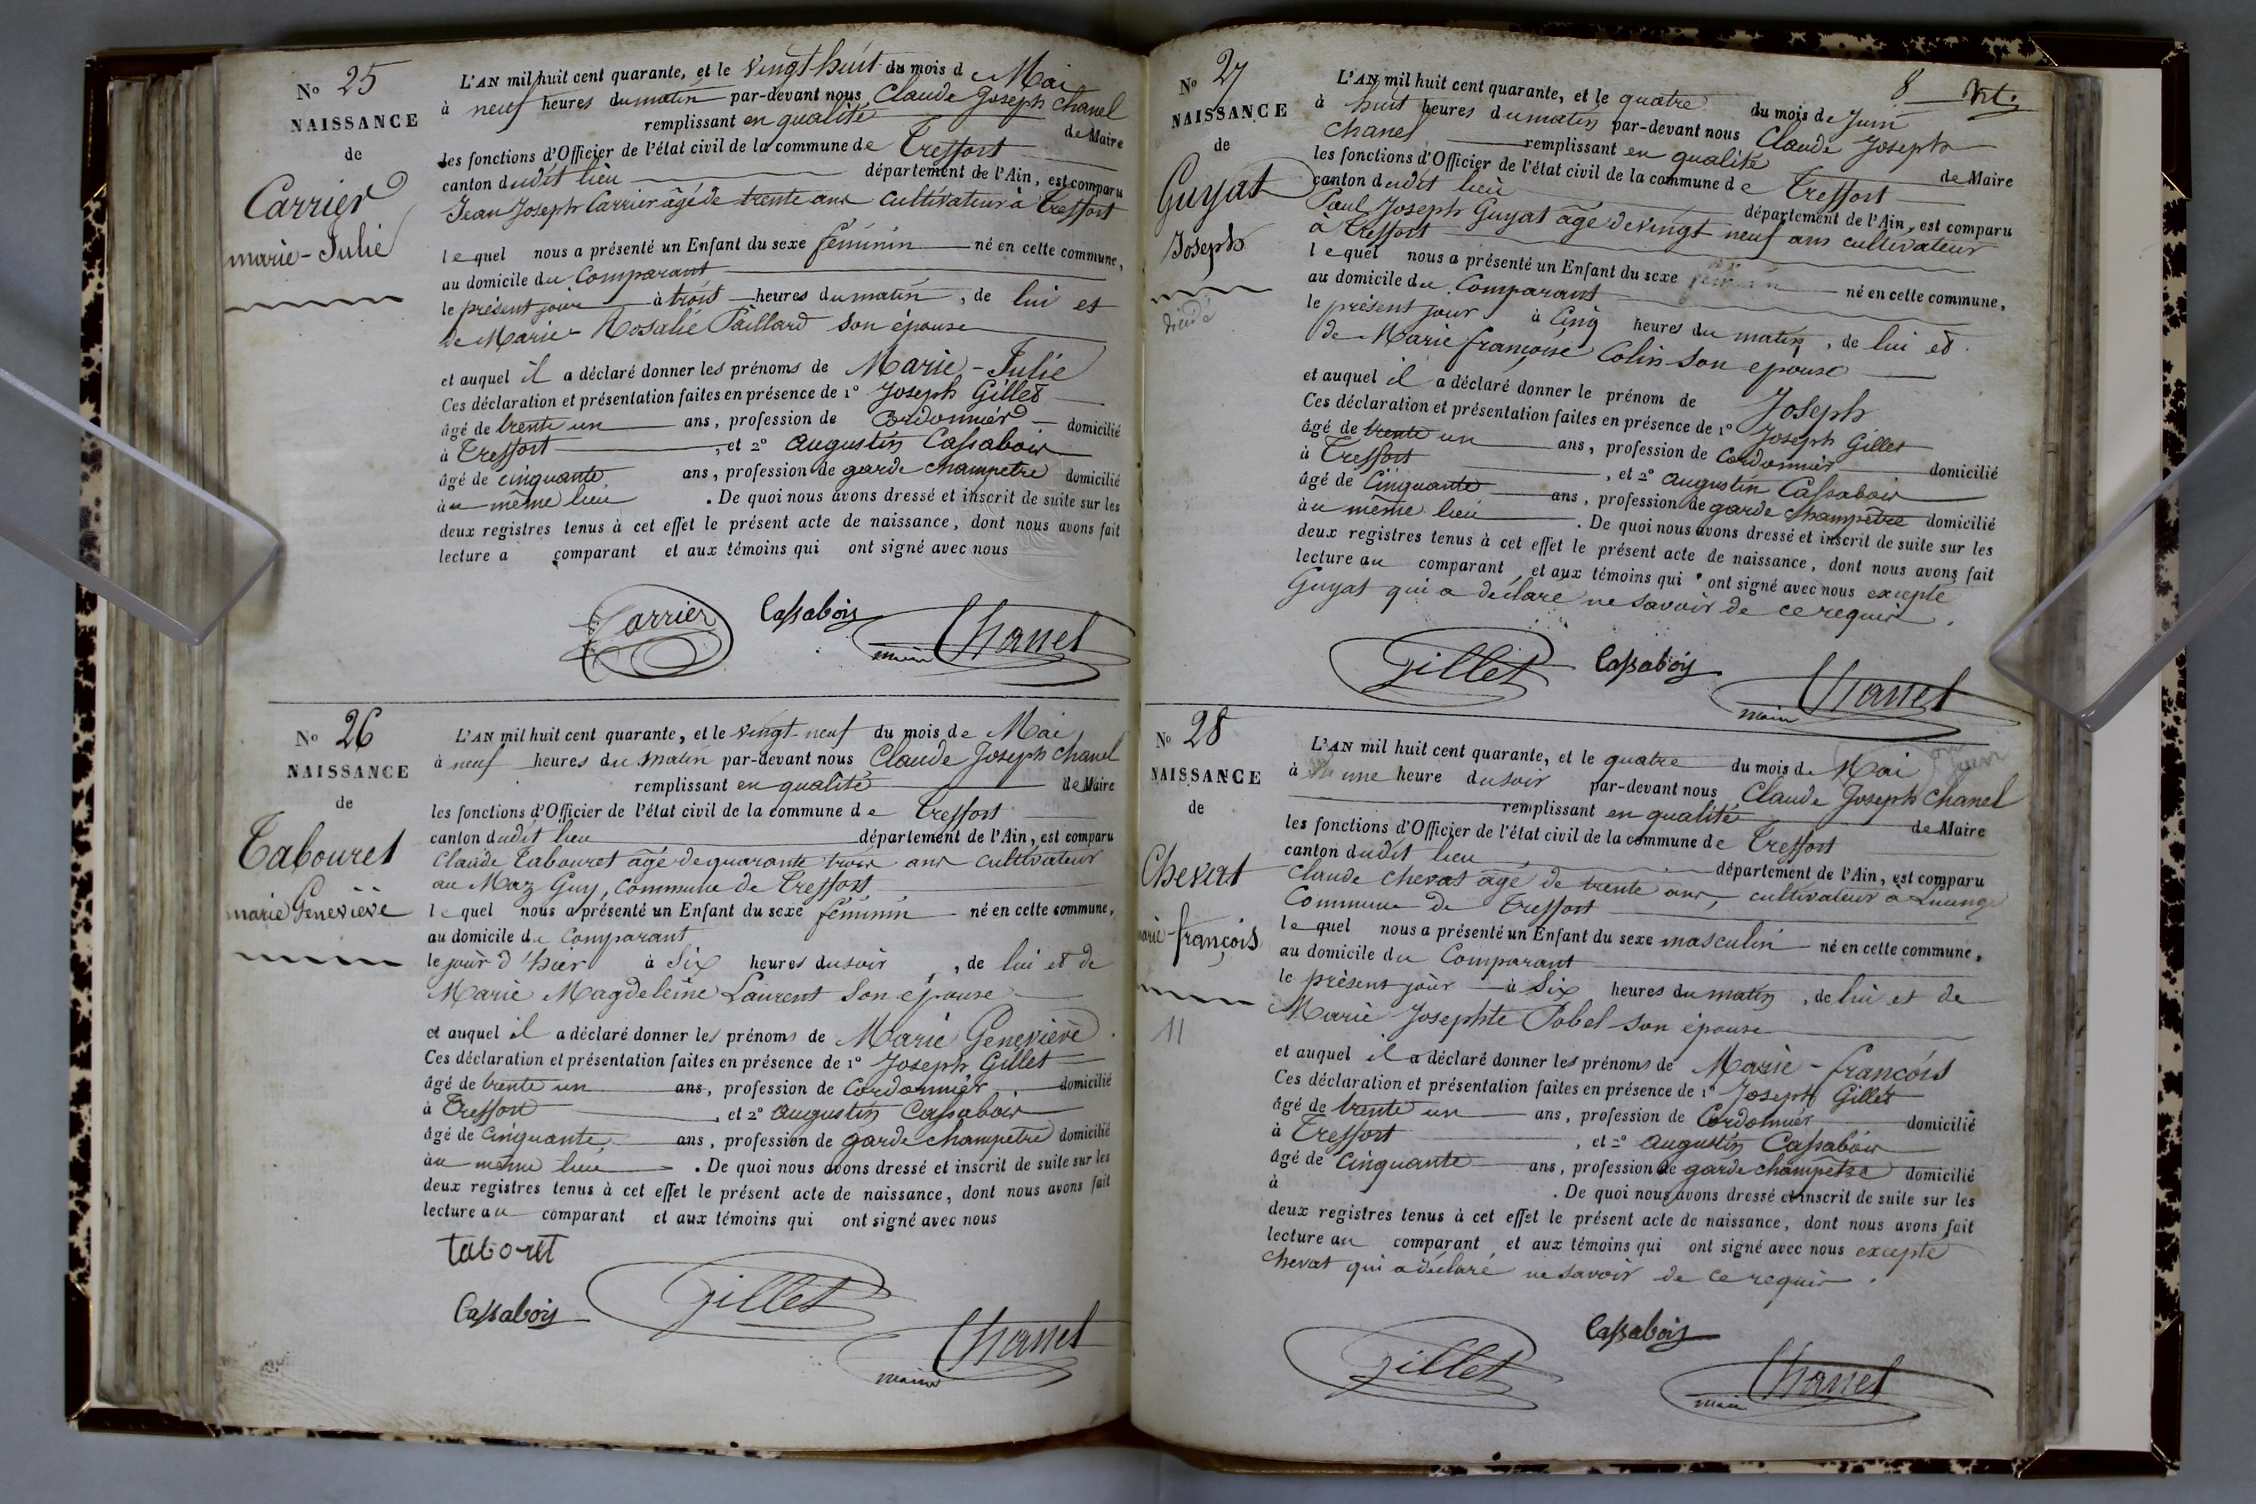 No 25
NAISSANCE
de
Carrier
marie-Julie
L'AN mil huit cent quarante, et le vingt huit du mois de Mai
à neuf heures du matin par-devant nous Claude Joseph Chanel
remplissant en qualité de Maire
les fonctions d'Officier de l'état civil de la commune de Treffort
canton dudit lieu département de l'Ain, est comparu
Jean Joseph Carrier âgé de trente ans Cultivateur à Treffort
lequel nous a présenté un Enfant du sexe féminin né en cette commune,
au domicile du Comparant
le présent jour à trois heures du matin, de lui et
de Marie-Rosalie Paillard son épouse
et auquel il a déclaré donner les prénoms de Marie-Julie
Ces déclaration et présentation faites en présence de 1° Joseph Gillet
âgé de trente un ans, profession de Cordonnier domicilié
à Treffort, et 2° augustin Cassabois
âgé de cinquante ans, profession de garde champetre domicilié
au même lieu. De quoi nous avons dressé et inscrit de suite sur les
deux registres tenus à cet effet le présent acte de naissance, dont nous avons fait
lecture a comparant et aux témoins qui ont signé avec nous
Carrier Cassabois Chanel
maire
No 26
NAISSANCE
de
Tabouret
marie Geneviève
L'AN mil huit cent quarante, et le vingt-neuf du mois de Mai
à neuf heures du matin par-devant nous Claude Joseph Chanel
remplissant en qualité de Maire
les fonctions d'Officier de l'état civil de la commune de Treffort
canton dudit lieu département de l'Ain, est comparu
Claude Tabouret âgé de quarante trois ans cultivateur
au Maz Guy, commune de Treffort
lequel nous a présenté un Enfant du sexe féminin né en cette commune,
au domicile du comparant
le jour d'hier à Six heures du soir, de lui et de
Marie Magdeleine Laurent son épouse
et auquel il a déclaré donner les prénoms de Marie Geneviève.
Ces déclaration et présentation faites en présence de 1° Joseph Gillet
âgé de trente un ans, profession de Cordonnier domicilié
à Treffort, et 2° augustin Cassabois
âgé de Cinquante ans, profession de garde champetre domicilié
au même lieu. De quoi nous avons dressé et inscrit de suite sur les
deux registres tenus à cet effet le présent acte de naissance, dont nous avons fait
lecture au comparant et aux témoins qui ont signé avec nous
taboret
Cassabois Gillet
Chanel
maire
8
No 27
NAISSANCE
de
Guyat
Joseph
L'AN mil huit cent quarante, et le quatre du mois de Juin
à huit heures du matin par-devant nous Claude Joseph
Chanel remplissant en qualité de Maire
les fonctions d'Officier de l'état civil de la commune de Treffort
canton dudit lieu département de l'Ain, est comparu
Paul Joseph Guyat âgé de vingt neuf ans cultivateur
à Treffort
lequel nous a présenté un Enfant du sexe né en cette commune,
au domicile du Comparant
le présent jour à Cinq heures du matin, de lui et
de Marie françoise Colin son epouse
et auquel il a déclaré donner le prénom de Joseph
Ces déclaration et présentation faites en présence de 1° Joseph Gillet
âgé de trente un ans, profession de Cordonnier domicilié
à Treffort, et 2° augustin Cassabois
âgé de Cinquante ans, profession de garde champêtre domicilié
au même lieu. De quoi nous avons dressé et inscrit de suite sur les
deux registres tenus à cet effet le présent acte de naissance, dont nous avons fait
lecture au comparant et aux témoins qui ont signé avec nous excepté
Guyat qui a déclaré ne savoir de ce requis.
Gillet Cassabois Chanel
maire
No 28
NAISSANCE
de
Chevat
marie-françois
11
L'AN mil huit cent quarante, et le quatre du mois de Mai
à une heure du soir par-devant nous Claude Joseph Chanel
remplissant en qualité de Maire
les fonctions d'Officier de l'état civil de la commune de Treffort
canton dudit lieu département de l'Ain, est comparu
Claude chevat âgé de trente ans, cultivateur à
Commune de Treffort
lequel nous a présenté un Enfant du sexe masculin né en cette commune,
au domicile du Comparant
le présent jour à Six heures du matin, de lui et de
Marie Josephte Pobel son épouse
et auquel il a déclaré donner les prénoms de Marie-françois
Ces déclaration et présentation faites en présence de 1° Joseph Gillet
âgé de trente un ans, profession de Cordonnier domicilié
à Treffort, et 2° augustin Cassabois
âgé de Cinquante ans, profession de garde champêtre domicilié
à. De quoi nous avons dressé et inscrit de suite sur les
deux registres tenus à cet effet le présent acte de naissance, dont nous avons fait
lecture au comparant et aux témoins qui ont signé avec nous excepté
Chevat qui a déclaré ne savoir de ce requis.
Cassabois
Gillet Chanel
maire